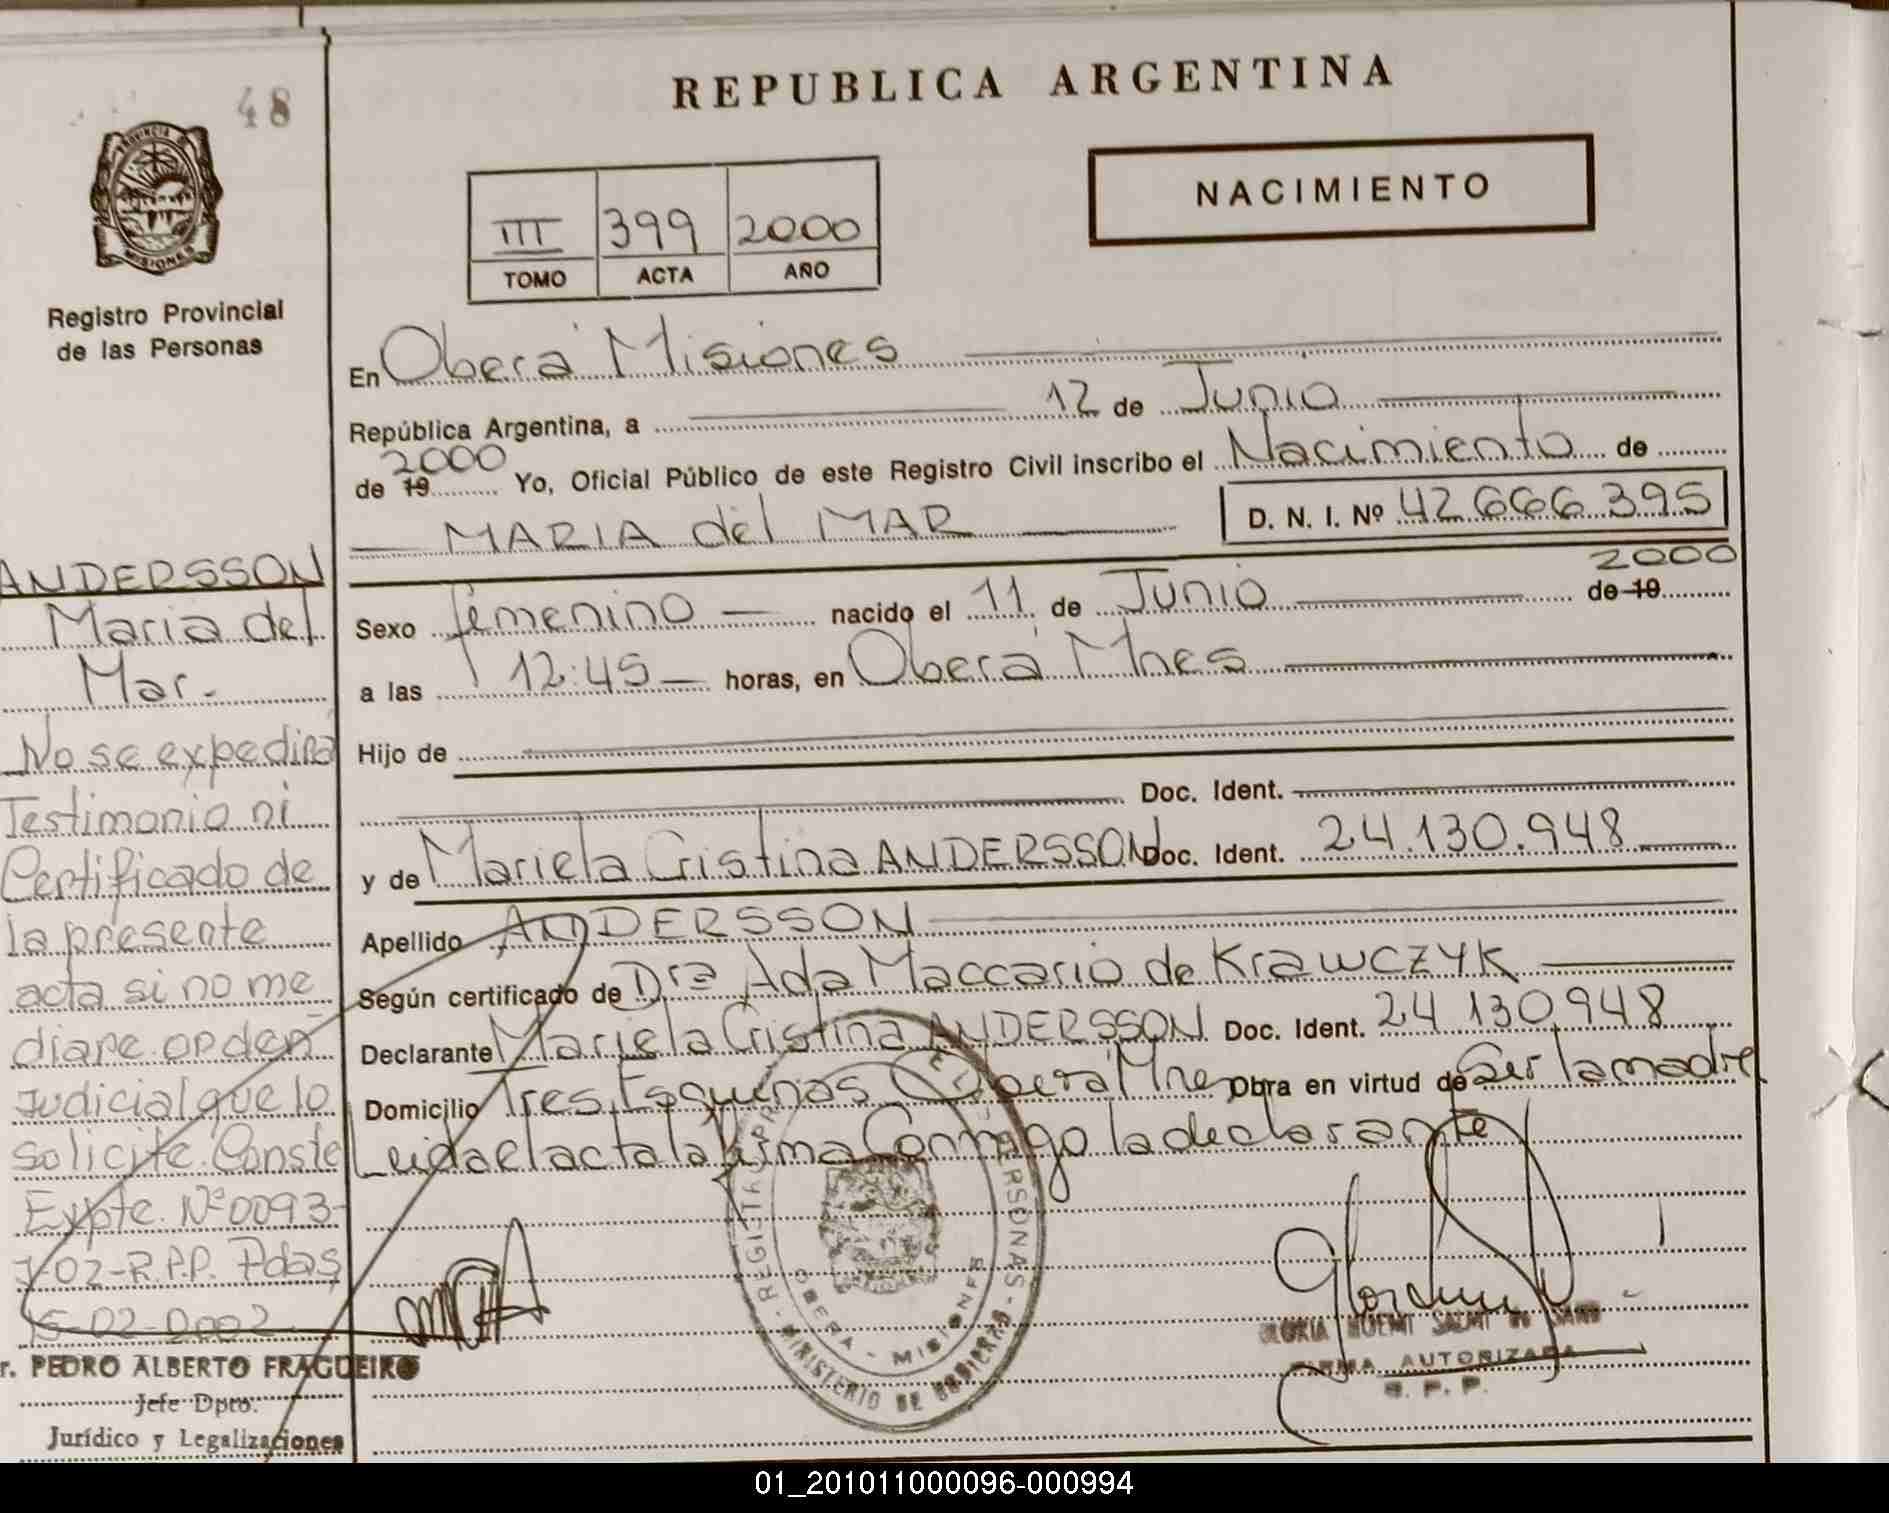 48
PROVINCIA DE
MISIONES
Registro Provincial
de las Personas
ANDERSSON
Maria del
Mar.-
No se expedirá
Testimonio ni
Certificado de
la presente
acta si no me
diare orden
Judicial que lo
solicite. Conste
Expte. Nº 0093-
J-02-R.P.P. Pdas
15-02-2002
r. PEDRO ALBERTO FRAGUEIRO
Jefe Dpto.
Jurídico y Legalizaciones
REPUBLICA ARGENTINA
NACIMIENTO
III 399 2000
TOMO ACTA AÑO
En Oberá Misiones
República Argentina, a 12 de Junio
de 19 2000 Yo, Oficial Público de este Registro Civil inscribo el Nacimiento de
MARIA del MAR D. N. I. Nº 42.666.395
Sexo femenino nacido el 11 de Junio de 19 2000
a las 12:45 horas, en Oberá Mnes
Hijo de
Doc. Ident.
y de Mariela Cristina ANDERSSON Doc. Ident. 24.130.948
Apellido ANDERSSON
Según certificado de Dra Ada Maccario de Krawczyk
Declarante Mariela Cristina ANDERSSON Doc. Ident. 24 130 948
Domicilio Tres Esquinas Oberá Mnes Obra en virtud de Ser la madre
Leida el acta la firma Conmigo la declarante
OBERA - MISIONES
MINISTERIO DE GOBIERNO
GLORIA NOEMI
FIRMA AUTORIZADA
R. P. P.
01_201011000096-000994